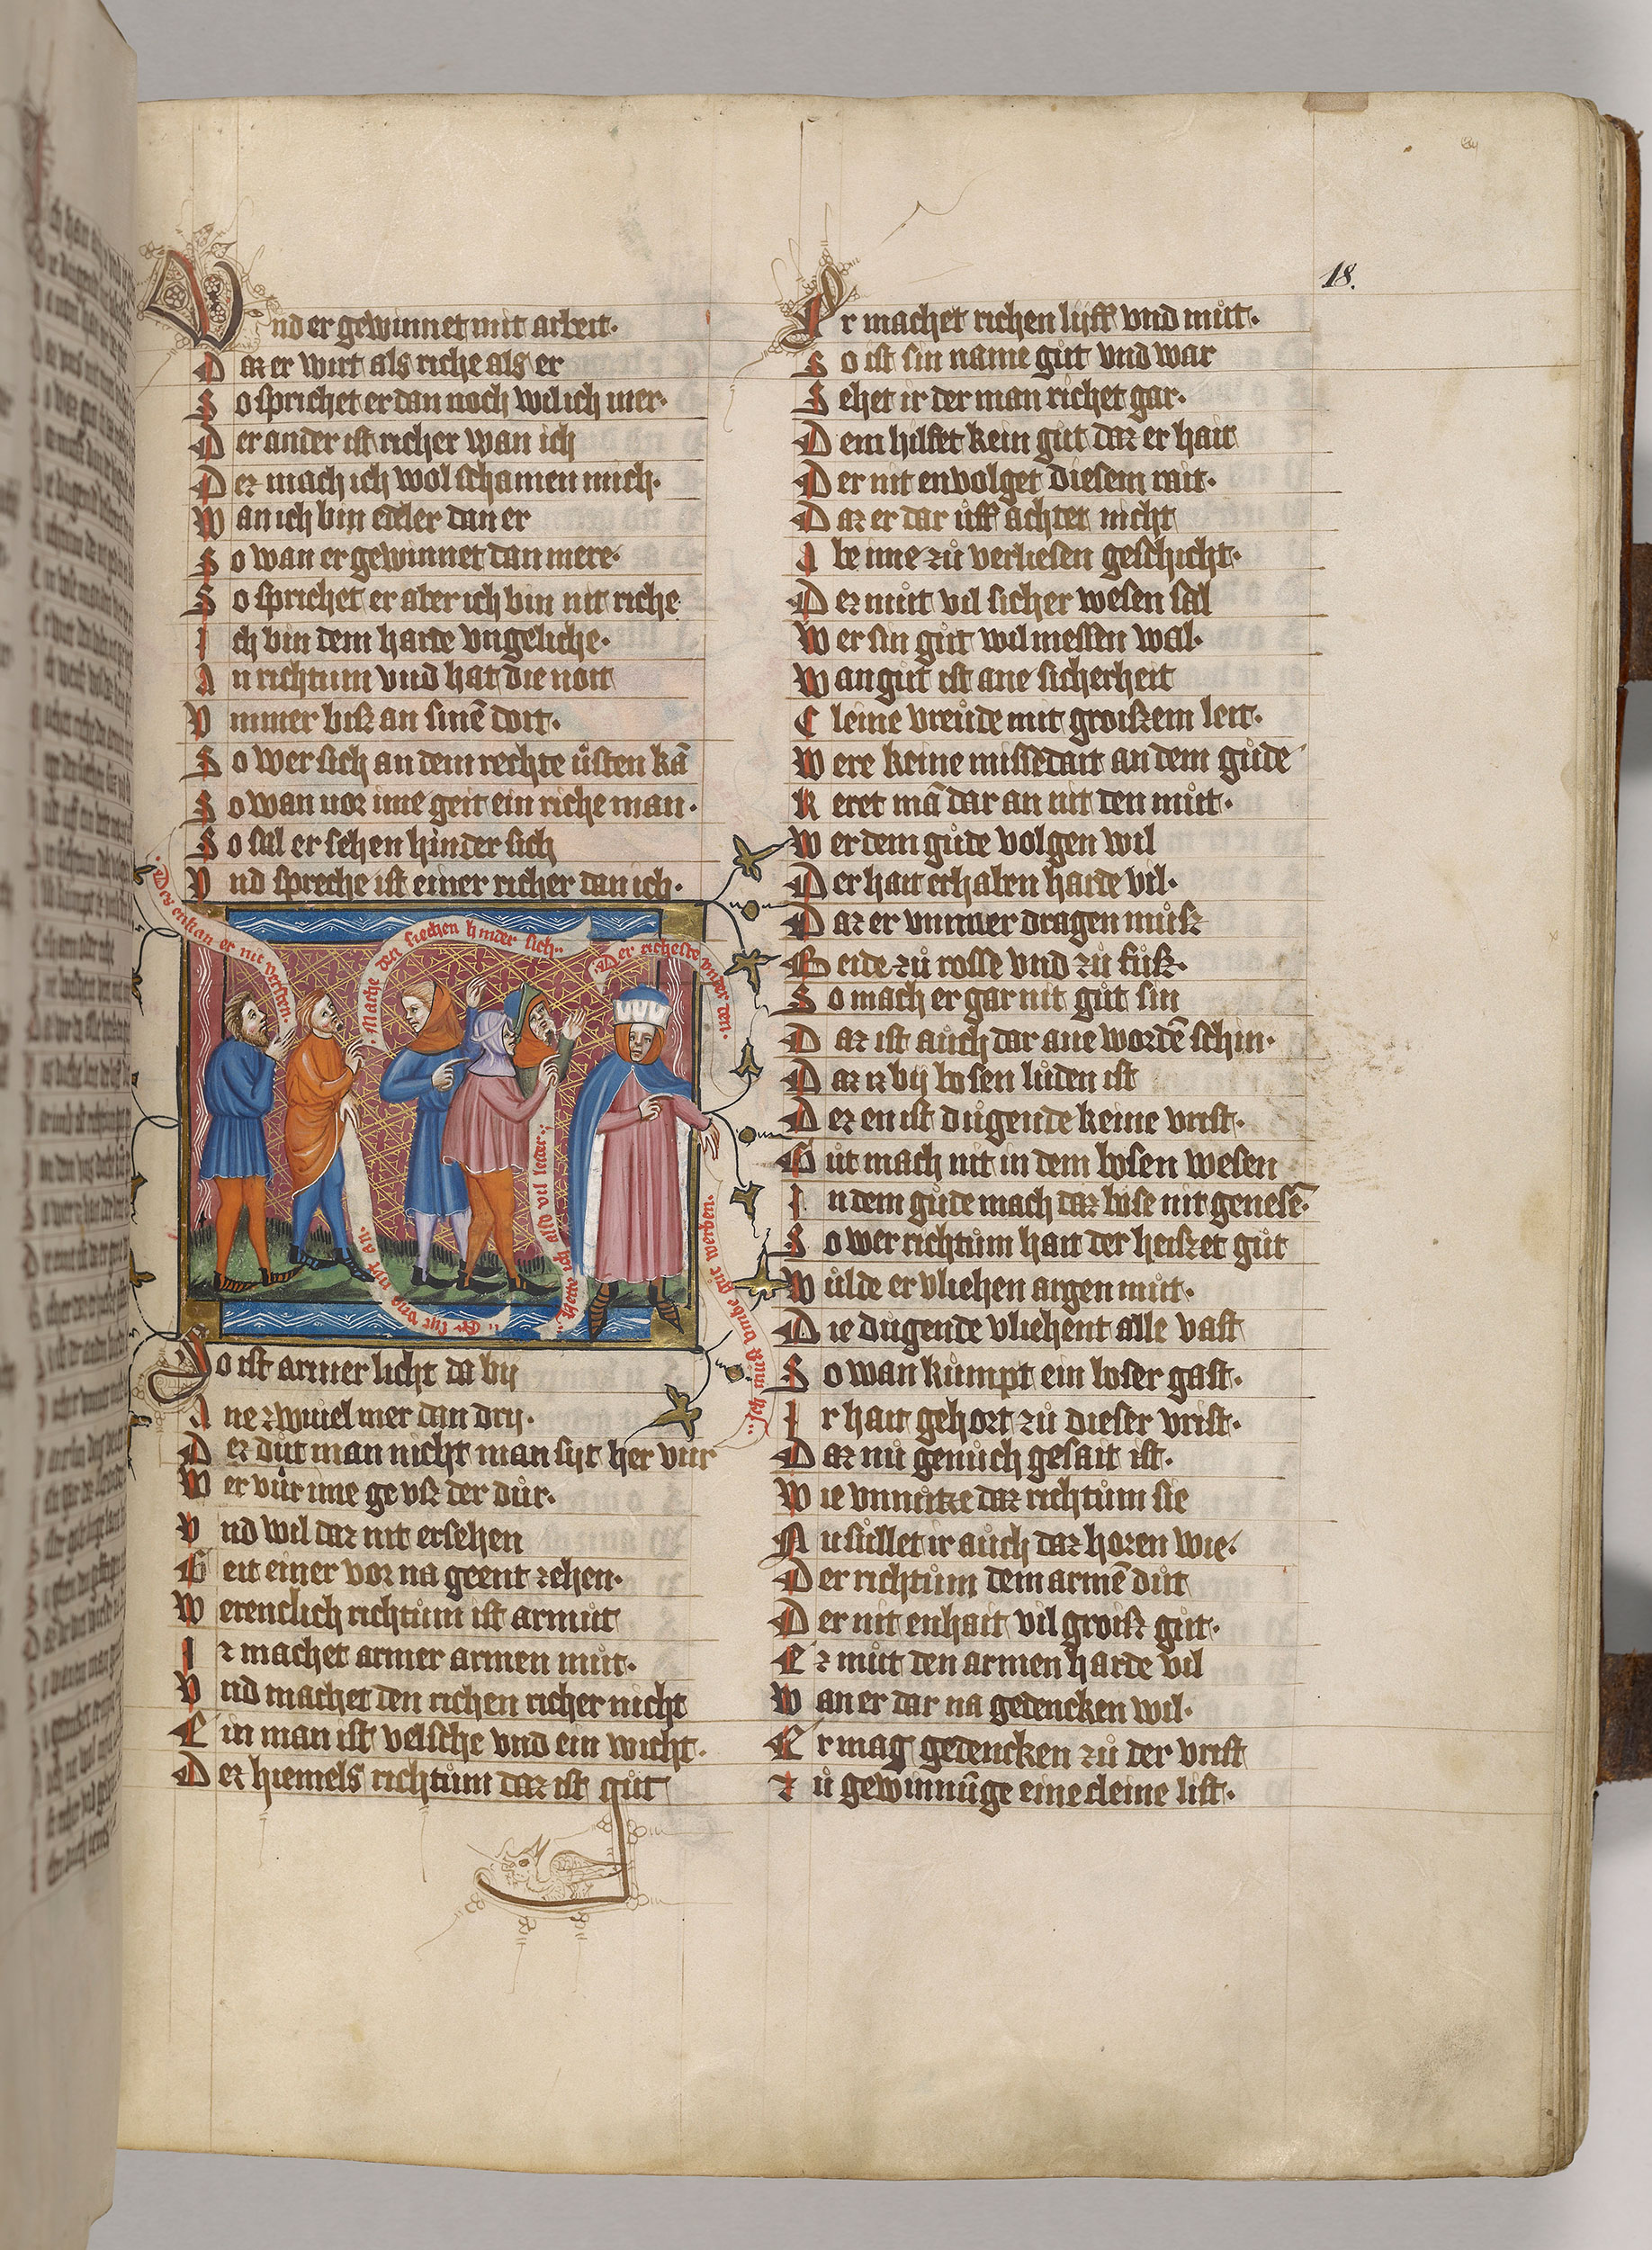 18.
Vnd er gewinnet mit arbeit·
Daz er wirt als riche als er
So sprichet er dan noch wil ich mer·
Der ander ist richer wan ich
Dez mach ich wol schamen mich·
Wan ich bin edeler dan er
So wan er gewinnet dan mere·
So sprichet er aber ich bin nit riche
Ich bin dem harte vngeliche·
An richtum vnd hat die noit
Vmmer biz an sinē doit·
So wer sich an dem rechte uͦsten kā
So wan uor ime geit ein riche man·
So sal er sehen hinder sich
Vnd spreche ist einer richer dan ich·
Des enkan er nit
Mache den siechen hinder sich
Der richeste vnder
Er siit vns nit an
Hette ich also vil leder
Ich muͦz vmbe guͦt werben
So ist armer licht da bij
Ane zwiuel mer dan drij·
Dez duͦt man nicht man siit her vur
Wer vuͦr ime ge vz der duͦr·
Vnd wil daz nit ersehen
Geit einer vor na geent zehen·
Werenclich richtuͦm ist armuͦt
Iz machet armer armen muͦt·
Vnd machet den richen richer nicht
Ein man ist velsche vnd ein wicht·
Dez hiemels richtuͦm daz ist guͦt
Er machet richen lijff vnd muͦt·
So ist sin name guͦt vnd war
Sehet ir der man richet gar·
Dem hilfet kein guͦt daz er hait
Der nit envolget diesem rait·
Daz er dar uͦff achtet nicht
Abe ime zuͦ verliesen geschicht·
Dez muͦt vil sicher wesen sal
Wer sin guͦt wil messen wal·
Wan guͦt ist ane sicherheit
Cleine vreuͦde mit groizem leit·
Were keine missedait an dem guͦde
Keret mā dar an nit den muͦt·
Wer dem guͦde volgen wil
Der hait erhaben harde vil·
Daz er vmmer dragen muͦz
Beide zuͦ rosse vnd zuͦ fuͦz·
So mach er gar nit guͦt sin
Daz ist auͦch dar ane wordē schin·
Daz iz bij bosen luͦden ist
Dez en ist duͦgende keine vrist·
Guͦt mach nit in dem bosen wesen
In dem guͦde mach daz bose nit genesē·
So wer richtuͦm hait der heizet guͦt
Wuͦlde er vliehen argen muͦt·
Die duͦgende vliehent alle vast
So wan kuͦmpt ein boser gast·
Ir hait gehort zuͦ dieser vrist·
Daz nuͦ genuͦch gesait ist·
Wie vnnuͦtze daz richtuͦm sie
Nu suͦllet ir auͦch daz horen wie·
Der richtuͦm dem armē duͦt
Der nit enhait vil groiz guͦt·
Ez muͦt den armen harde vil
Wan er dar na gedencken wil·
Er mag gedencken zuͦ der vrist
Zuͦ gewinnūge eine cleine list·